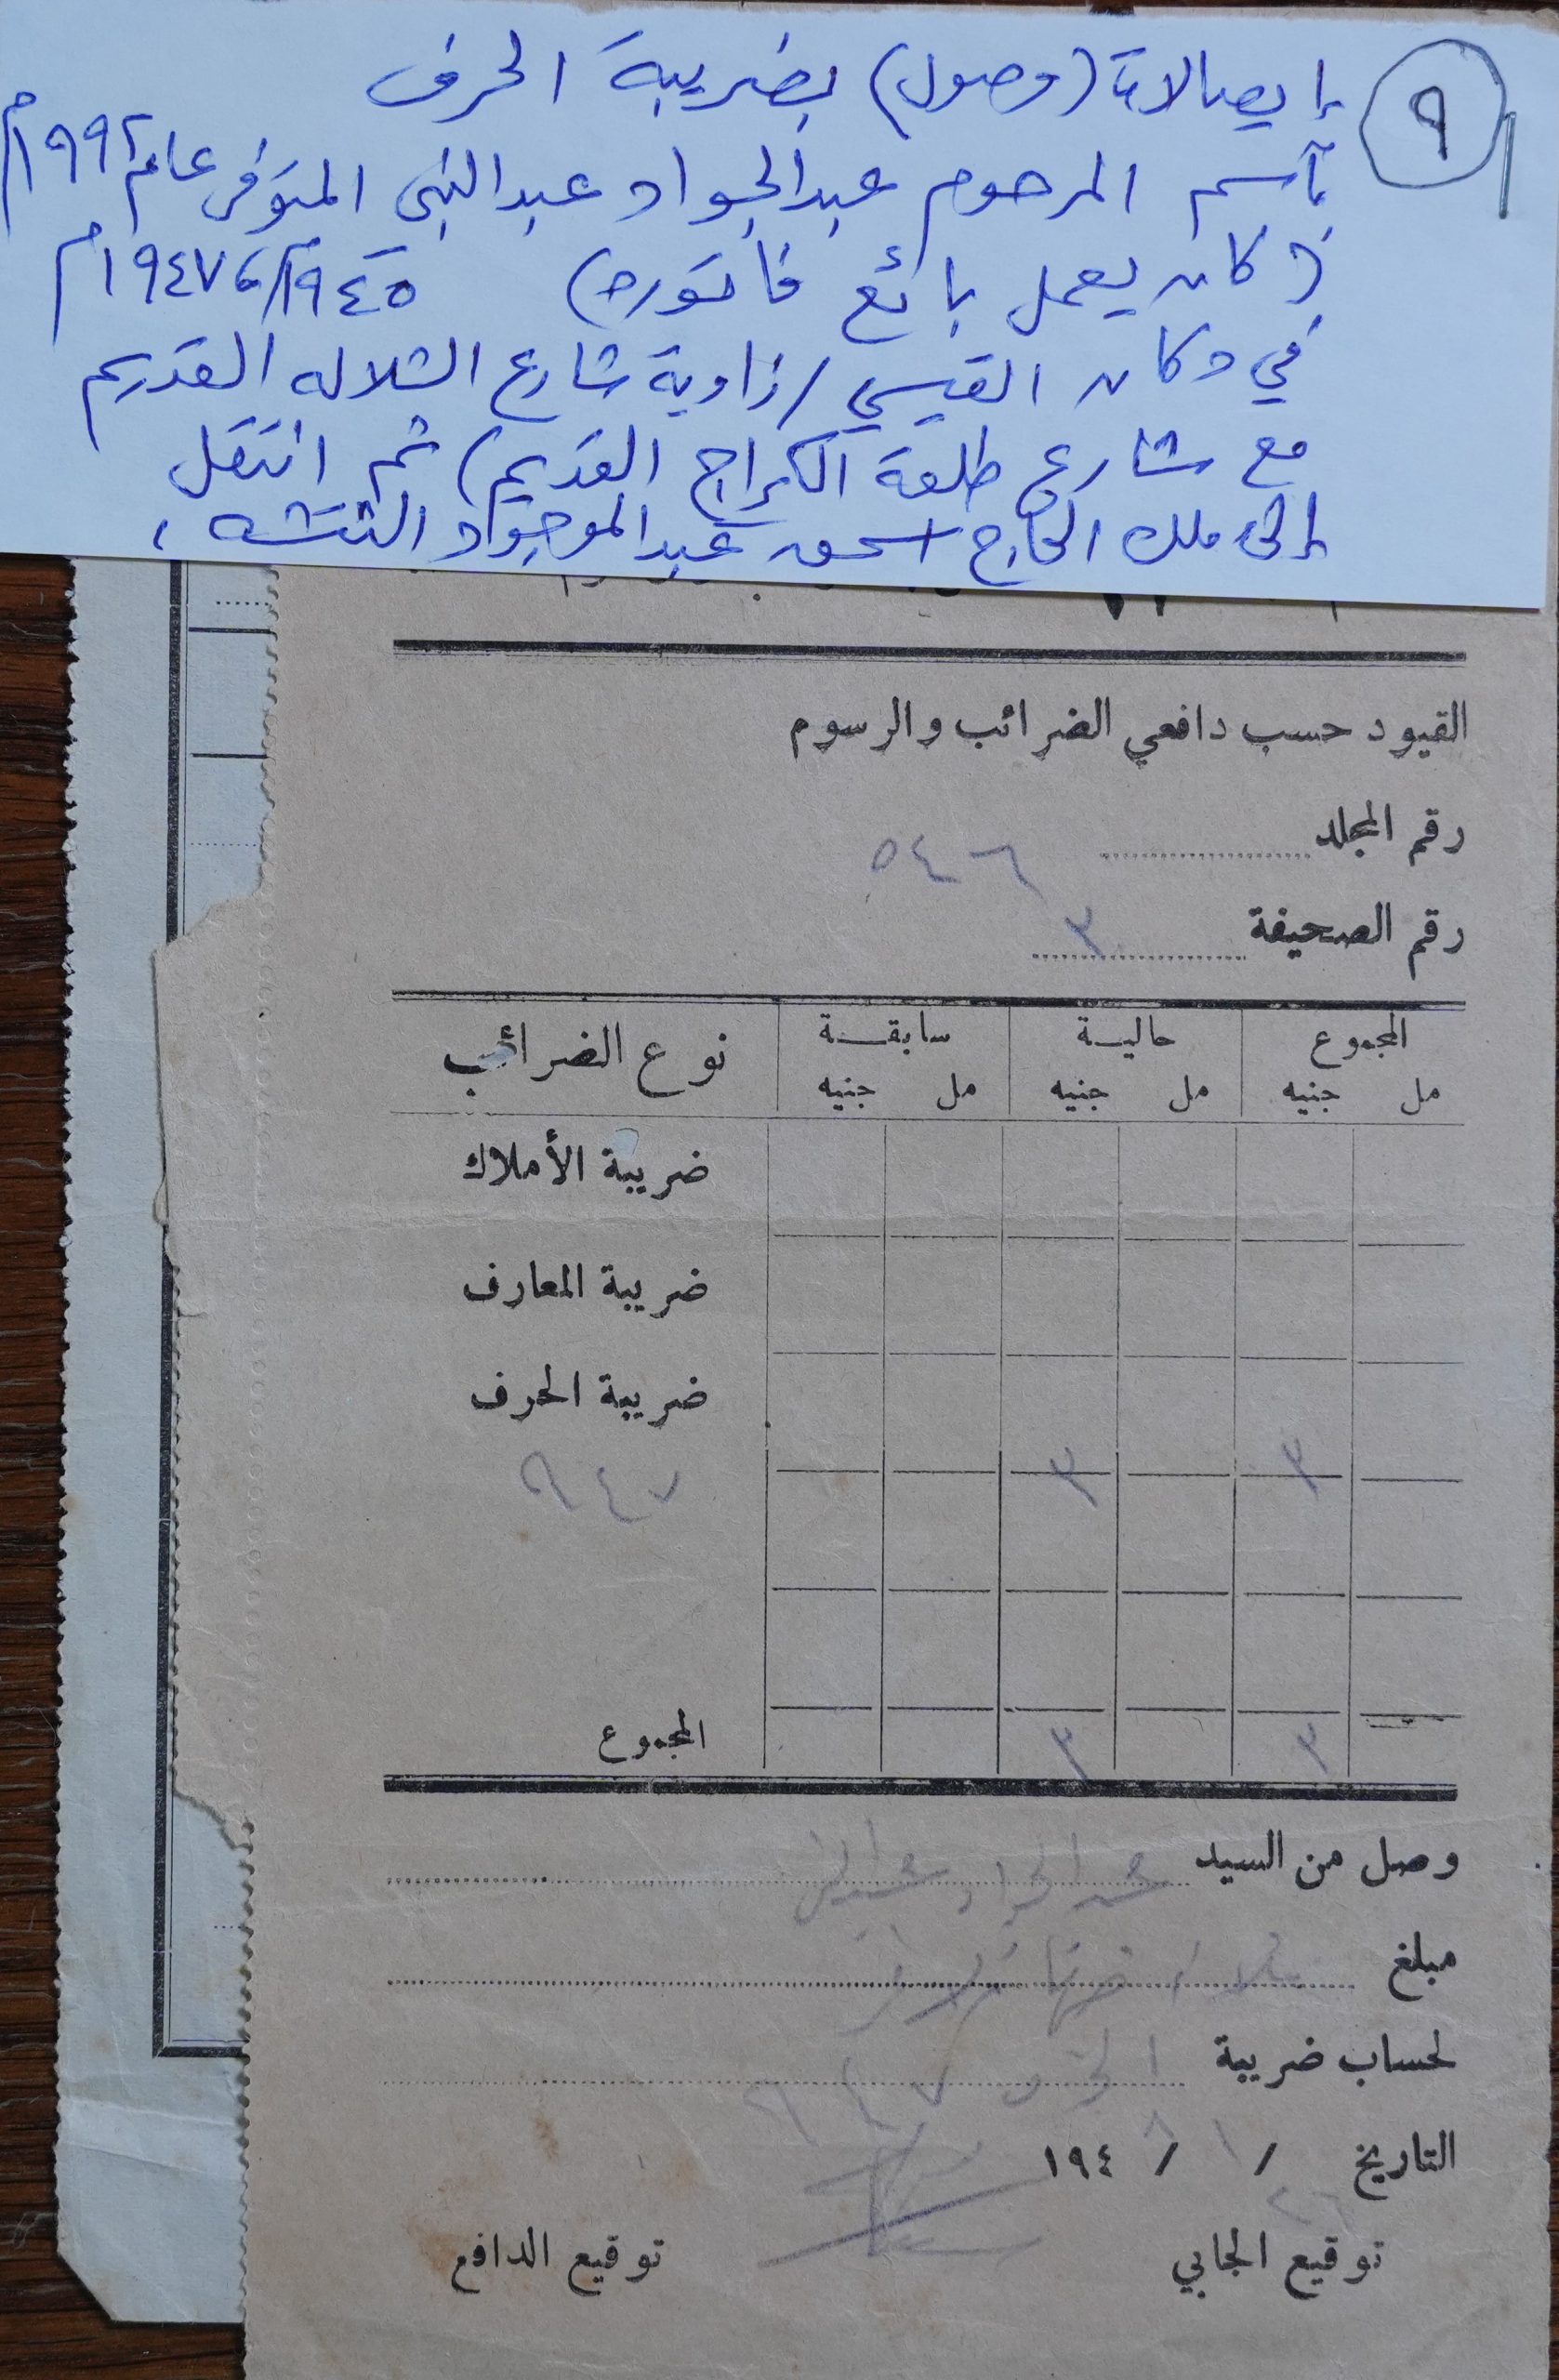 ٩
إيصالات (وصول) بضريبة الحرف
بآسم المرحوم عبدالجواد عبدالنبي المتوفى عام ١٩٩٢م
(كان يعمل بائع فاتورة) ١٩٤٥م، ١٩٤٧م
في دكان القيسي / زاوية شارع الشلاله القديم
مع شارع طلعة الكراج القديم) ثم انتقل
إلى ملك الحاج اسحق عبدالموجود النتشه،
القيود حسب دافعي الضرائب والرسوم
رقم المجلد ٥٤٠٦
رقم الصحيفة ٣
المجموع حالية سابقة نوع الضرائب
مل جنيه مل جنيه مل جنيه
ضريبة الأملاك
ضريبة المعارف
ضريبة الحرف
٣ ٣ ٩٤٧
المجموع ٣ ٣
وصل من السيد عبدالجواد عبدالنبي
مبلغ ثلاثة جنيهات
لحساب ضريبة الحرف ٩٤٧
التاريخ ٢٦ / ١ / ١٩٤٨
توقيع الجابي توقيع الدافع